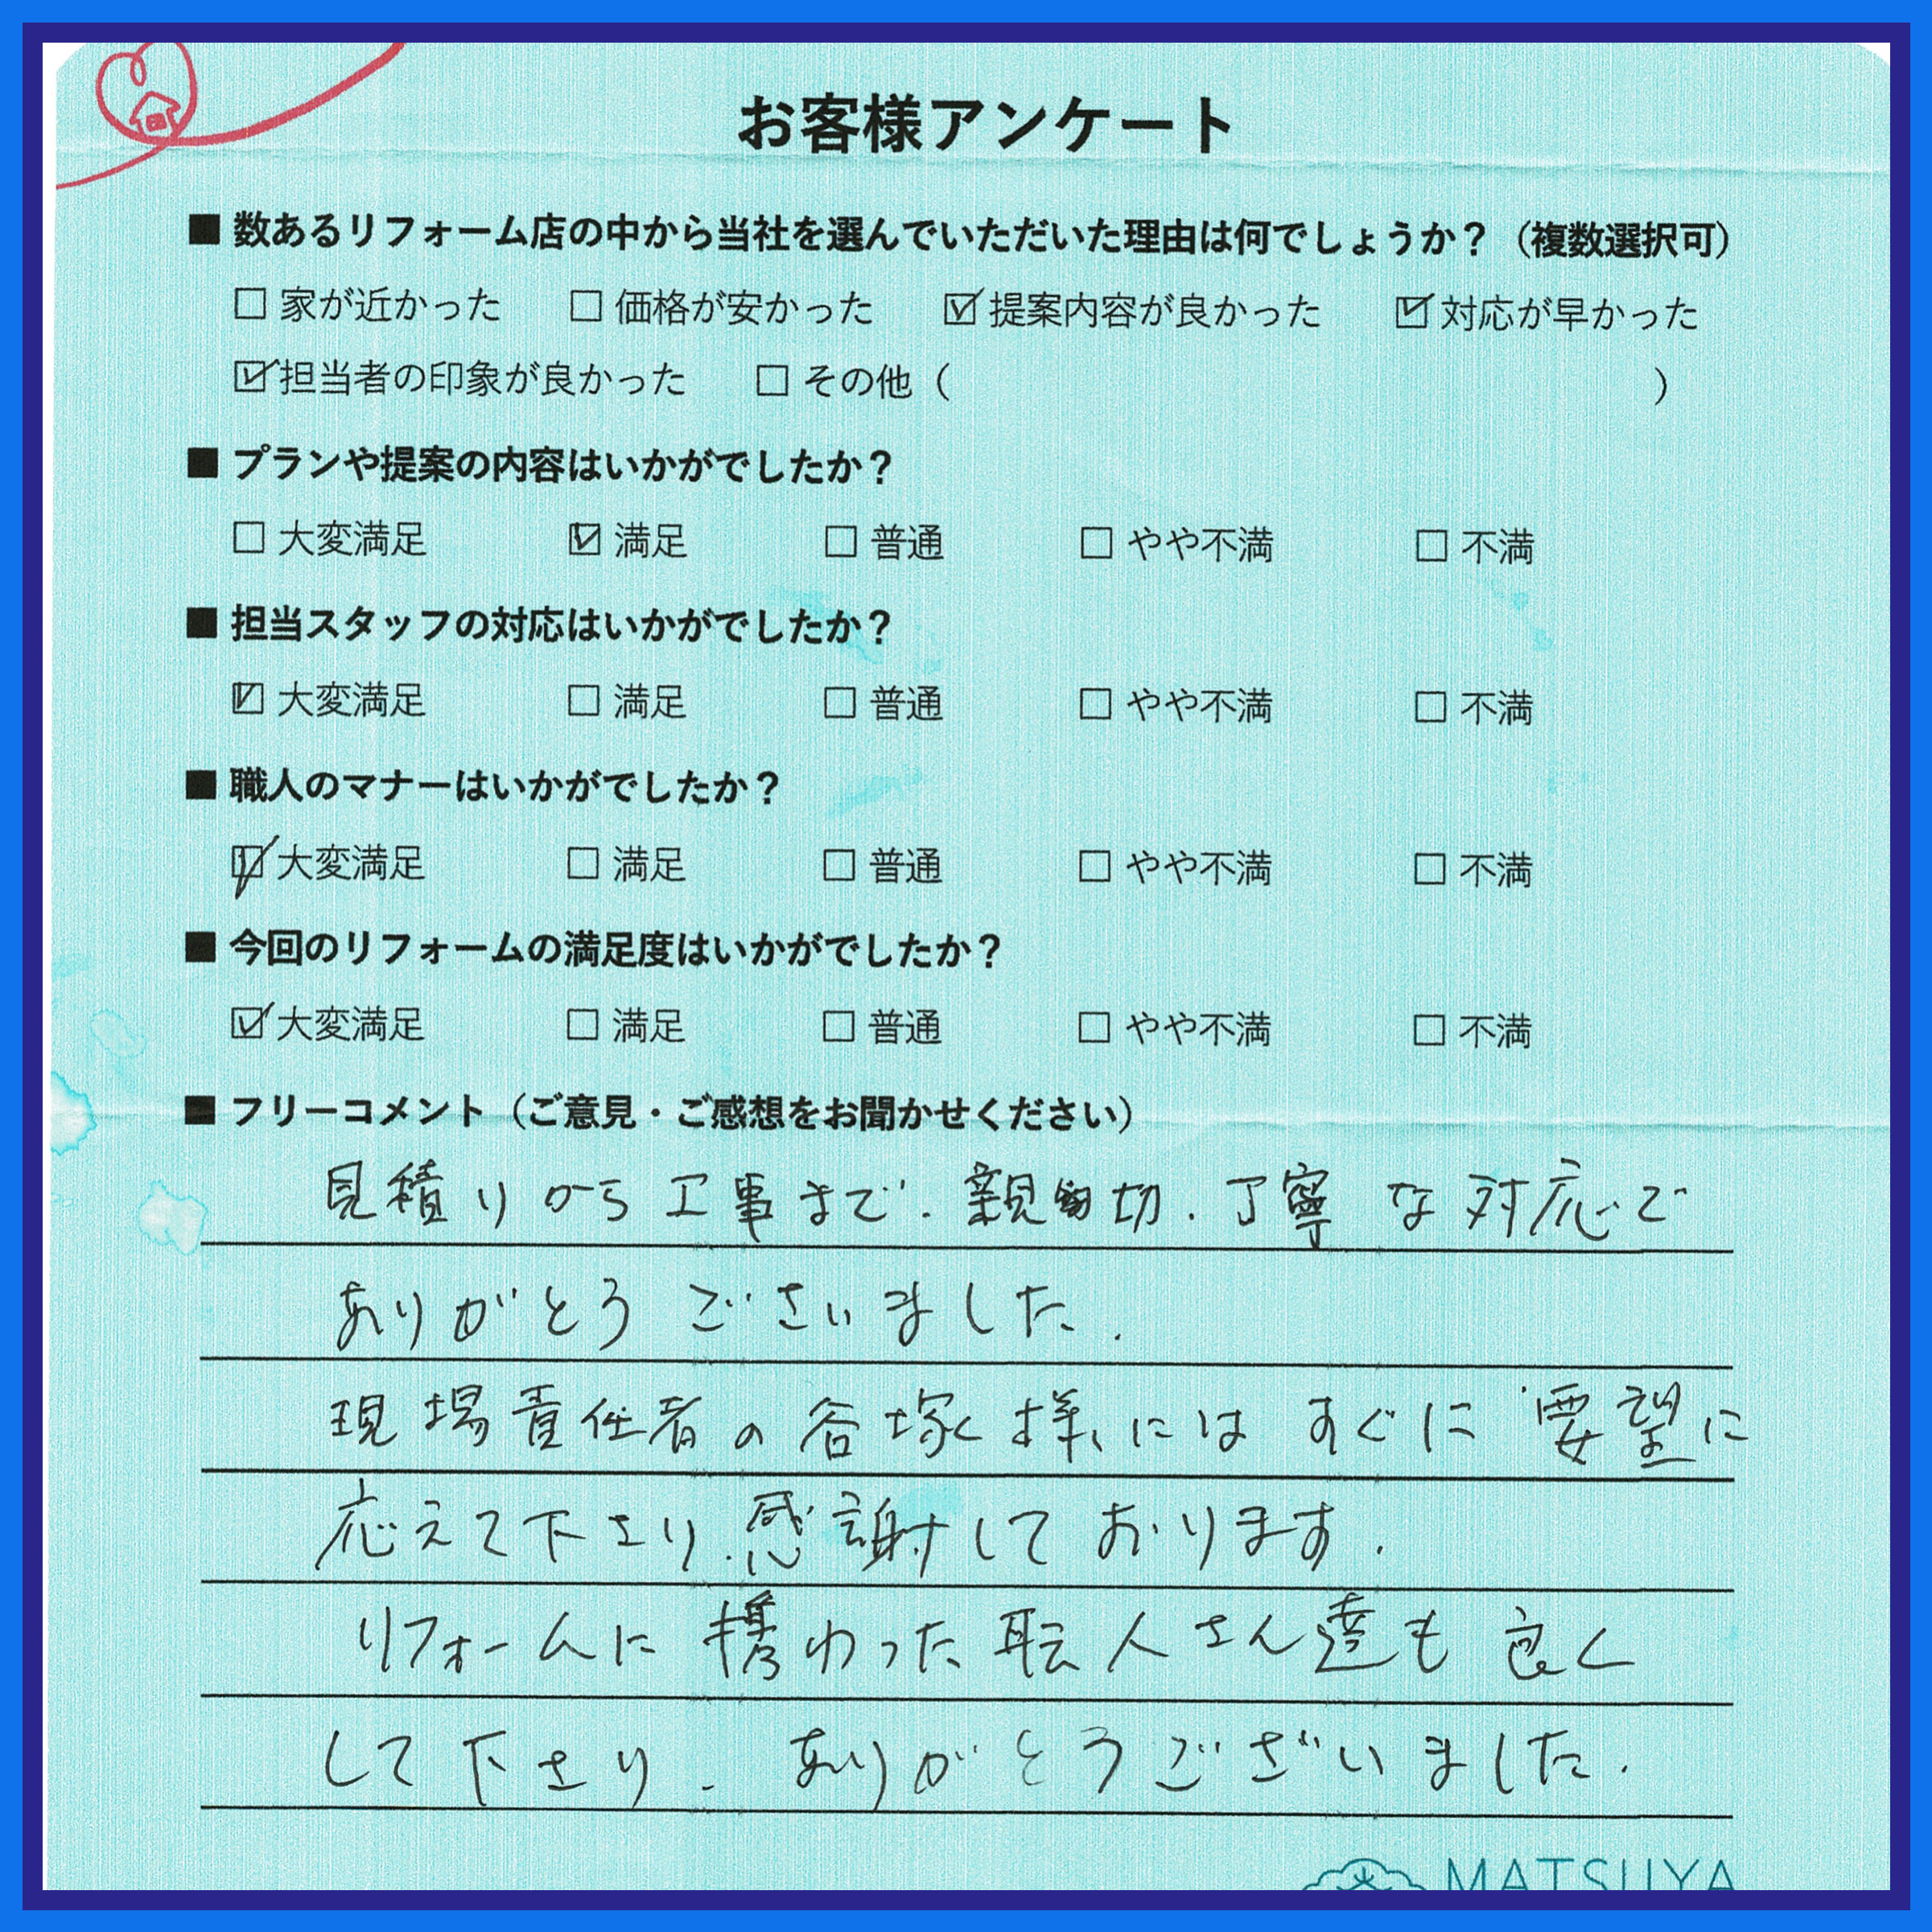 お客様アンケート
■ 数あるリフォーム店の中から当社を選んでいただいた理由は何でしょうか？（複数選択可）
□ 家が近かった □ 価格が安かった ☑ 提案内容が良かった ☑ 対応が早かった
☑ 担当者の印象が良かった □ その他（ ）
■ プランや提案の内容はいかがでしたか？
□ 大変満足 ☑ 満足 □ 普通 □ やや不満 □ 不満
■ 担当スタッフの対応はいかがでしたか？
☑ 大変満足 □ 満足 □ 普通 □ やや不満 □ 不満
■ 職人のマナーはいかがでしたか？
☑ 大変満足 □ 満足 □ 普通 □ やや不満 □ 不満
■ 今回のリフォームの満足度はいかがでしたか？
☑ 大変満足 □ 満足 □ 普通 □ やや不満 □ 不満
■ フリーコメント（ご意見・ご感想をお聞かせください）
見積りから工事まで、親切、丁寧な対応で
ありがとうございました.
現場責任者の谷塚様には すぐに要望に
応えて下さり、感謝しております.
リフォームに携わった職人さん達も良く
して下さり、ありがとうございました.
MATSUYA